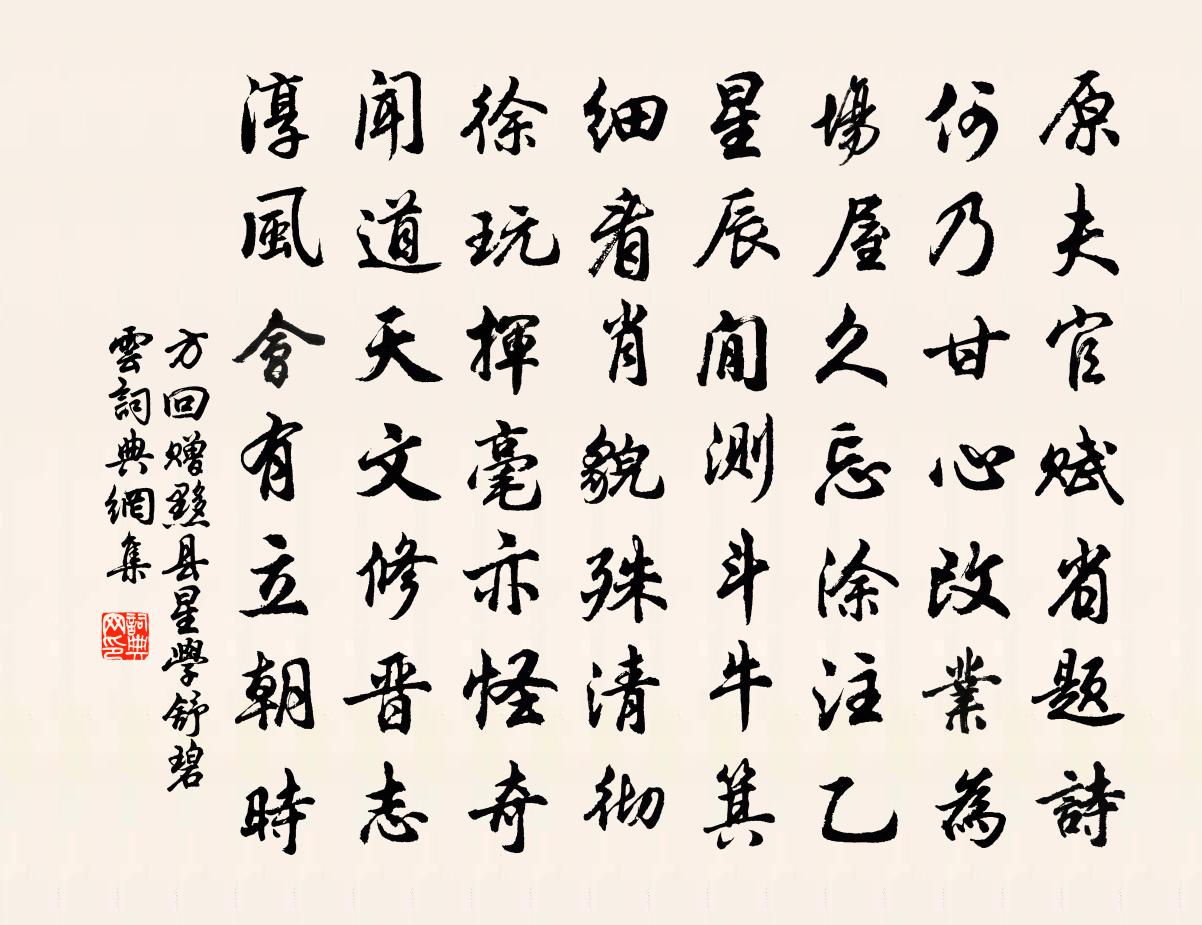 原夫官赋省题詩
何乃甘心改業為
場屋久忘涂注乙
星辰間测斗牛箕
细看肖貌殊清彻
徐玩揮毫亦怪奇
闻道天文修晋志
淳風會有立朝時
方回赠黟县星學舒碧
雲詞典網集
詞典网印